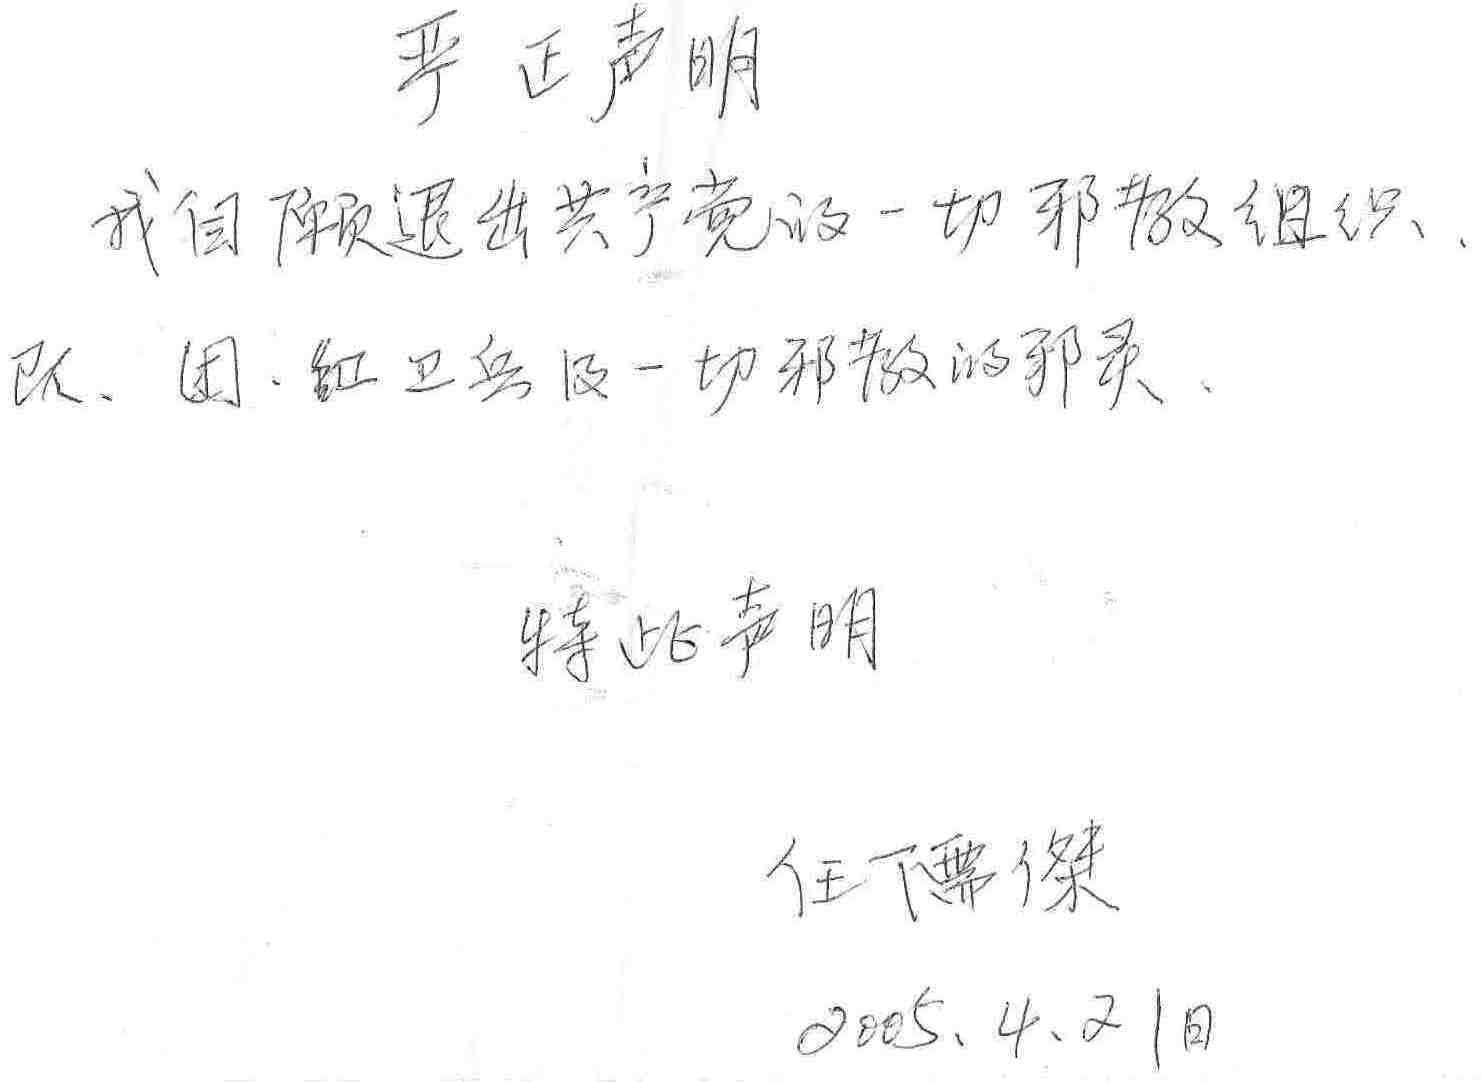 严正声明
我自愿退出共产党的一切邪教组织、
队、团、红卫兵及一切邪教的邪灵、
特此声明
任儒傑
2005.4.21日